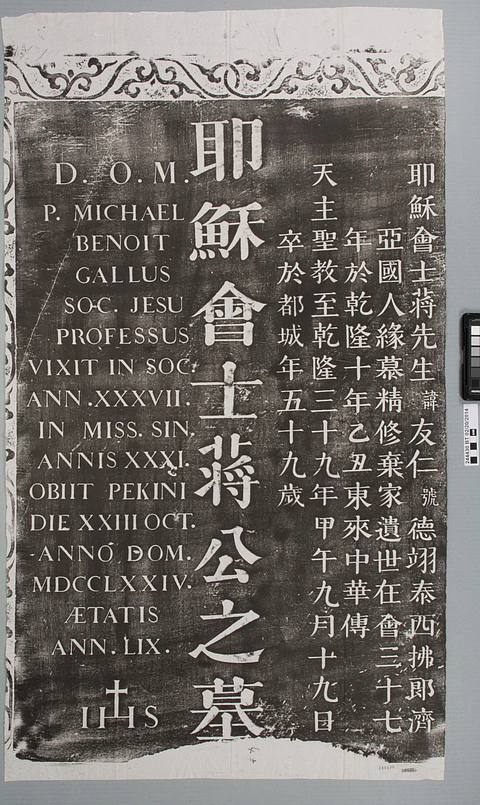 耶穌會士蔣先生諱友仁號德翊泰西拂郎濟
亞國人緣慕精修棄家遺世在會三十七
年於乾隆十年乙丑東來中華傳
天主聖教至乾隆三十九年甲午九月十九日
卒於都城年五十九歲
耶穌會士蔣公之墓
D. O. M.
P. MICHAEL
BENOIT
GALLUS
SOC. JESU
PROFESSUS
VIXIT IN SOC.
ANN. XXXVII.
IN MISS. SIN.
ANNIS XXXI.
OBIIT PEKINI
DIE XXIII OCT.
ANNO DOM.
MDCCLXXIV.
ÆTATIS
ANN. LIX.
IHS